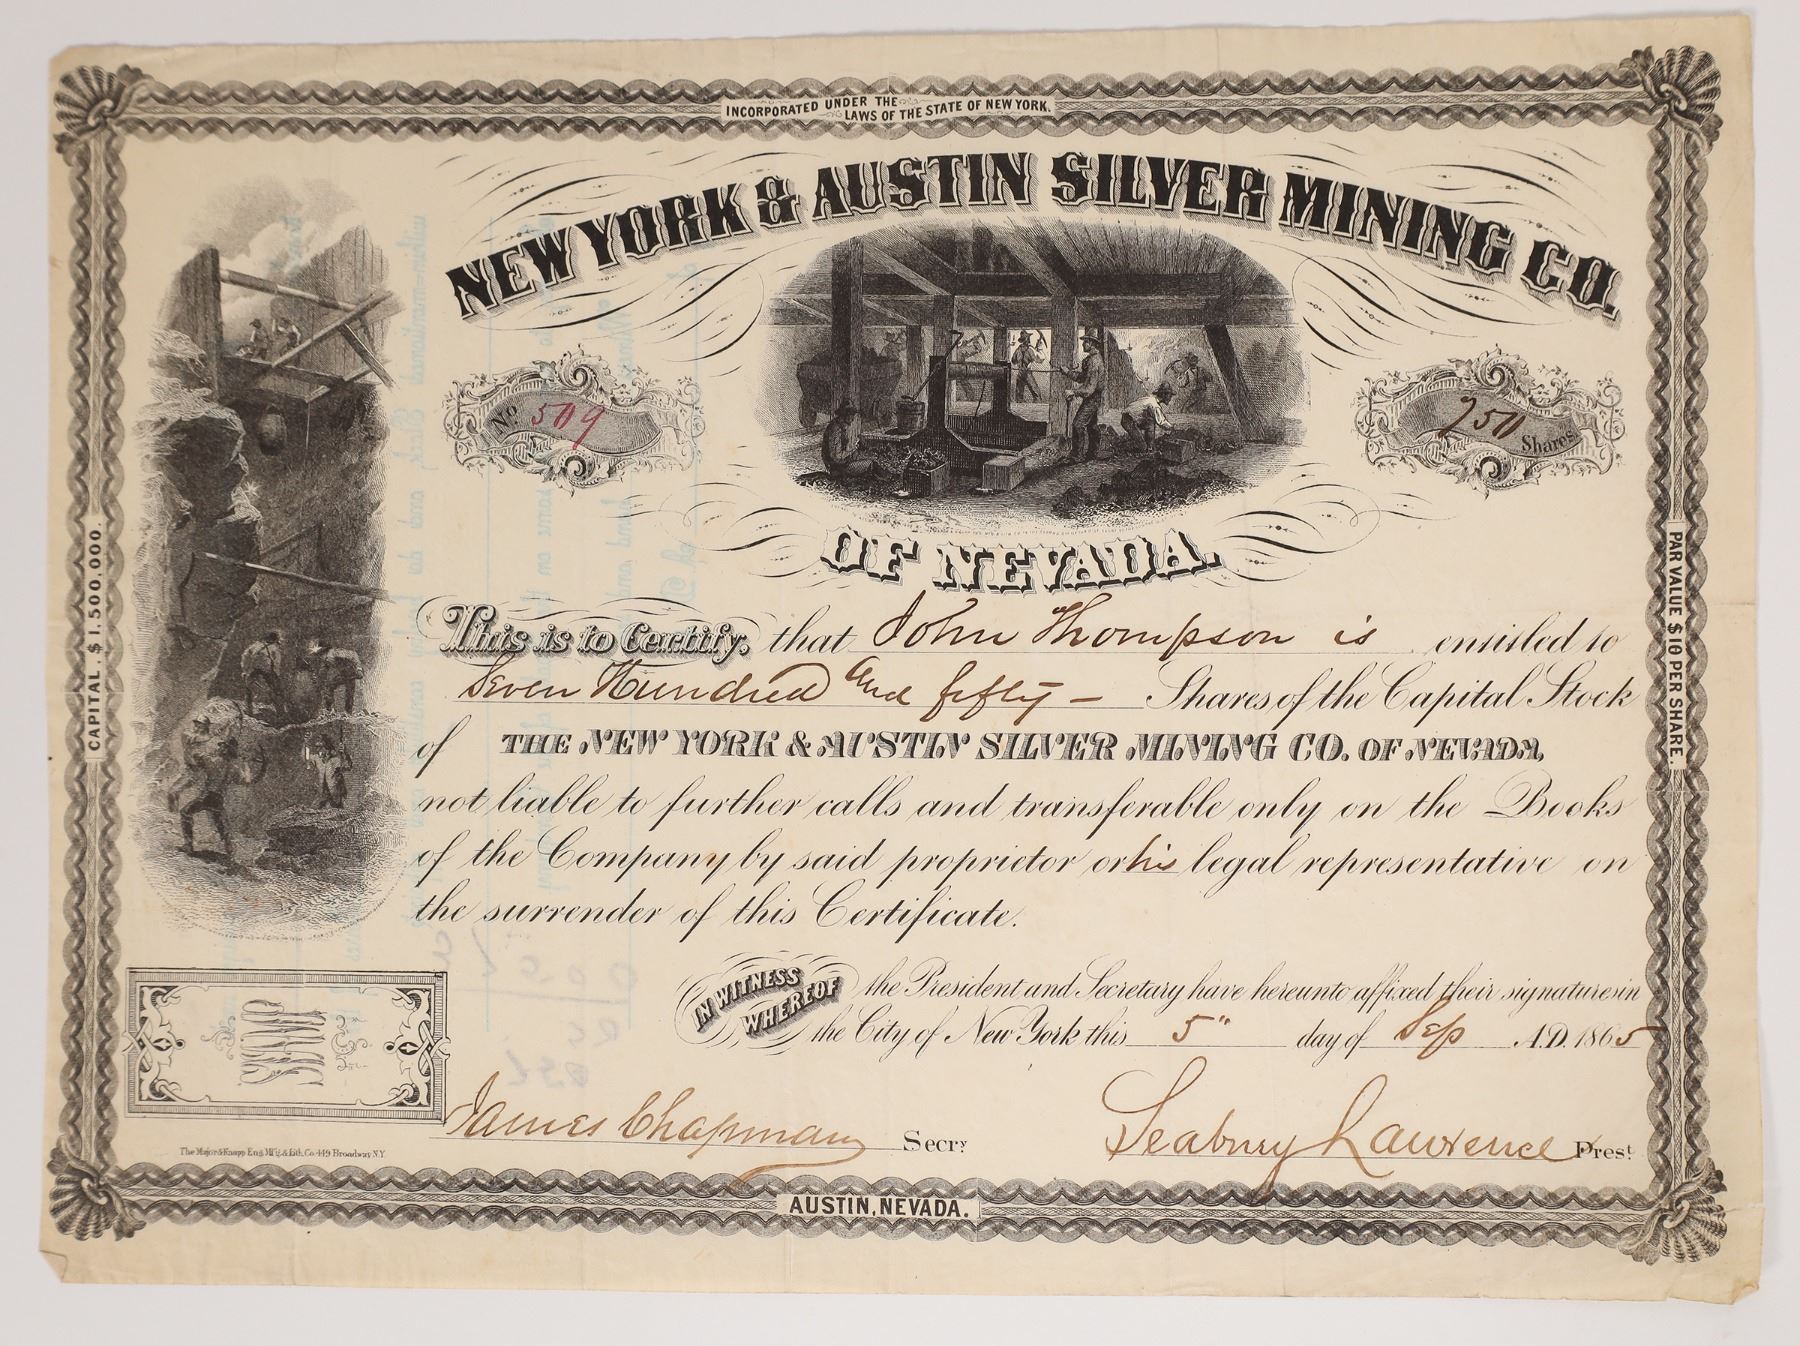 INCORPORATED UNDER THE
LAWS OF THE STATE OF NEW YORK.
NEW YORK & AUSTIN SILVER MINING CO.
No. 509
750 Shares
OF NEVADA.
CAPITAL. $1,500,000.
PAR VALUE $10 PER SHARE.
This is to Certify, that John Thompson is entitled to
Seven Hundred and fifty – Shares of the Capital Stock
of THE NEW YORK & AUSTIN SILVER MINING CO. OF NEVADA,
not liable to further calls and transferable only on the Books
of the Company by said proprietor or his legal representative on
the surrender of this Certificate.
IN WITNESS WHEREOF the President and Secretary have hereunto affixed their signatures in
the City of New York this 5" day of Sep A.D. 1865
James Chapman Secry.
Seabury Lawrence Prest.
The Major & Knapp Eng. Mf'g. & Lith. Co. 449 Broadway N.Y.
AUSTIN, NEVADA.